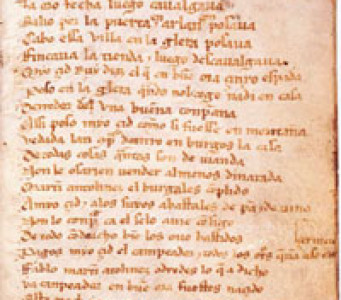 la oracion fecha luego cavalgava
Salio por la puerta & arlançon passava
Cabo essa villa en la glera posava
Fincava la tienda & luego descavalgava
Myo çid Ruy diaz el q̃ en buē ora çinxo espada
Poso en la glera q̃ndo nol coge nadi en casa
Derredor del vna buena conpaña
Assi poso myo çid como si fuesse en montaña
Vedada lan cõpra dentro en burgos la casa
De todas cosas quantas son de vianda
Non le osarien vender al menos dinarada
Martin antolinez el burgales cõplido
A myo çid & alos suyos abastales de pã & de vino
Non lo conpra ca el selo avie consigo
De todo conducho biē los ovo bastidos
Pagos myo çid el campeador & todos los otros
Fablo martin antolinez odredes lo q̃ a dicho
ya campeador en buē ora fuestes naçido